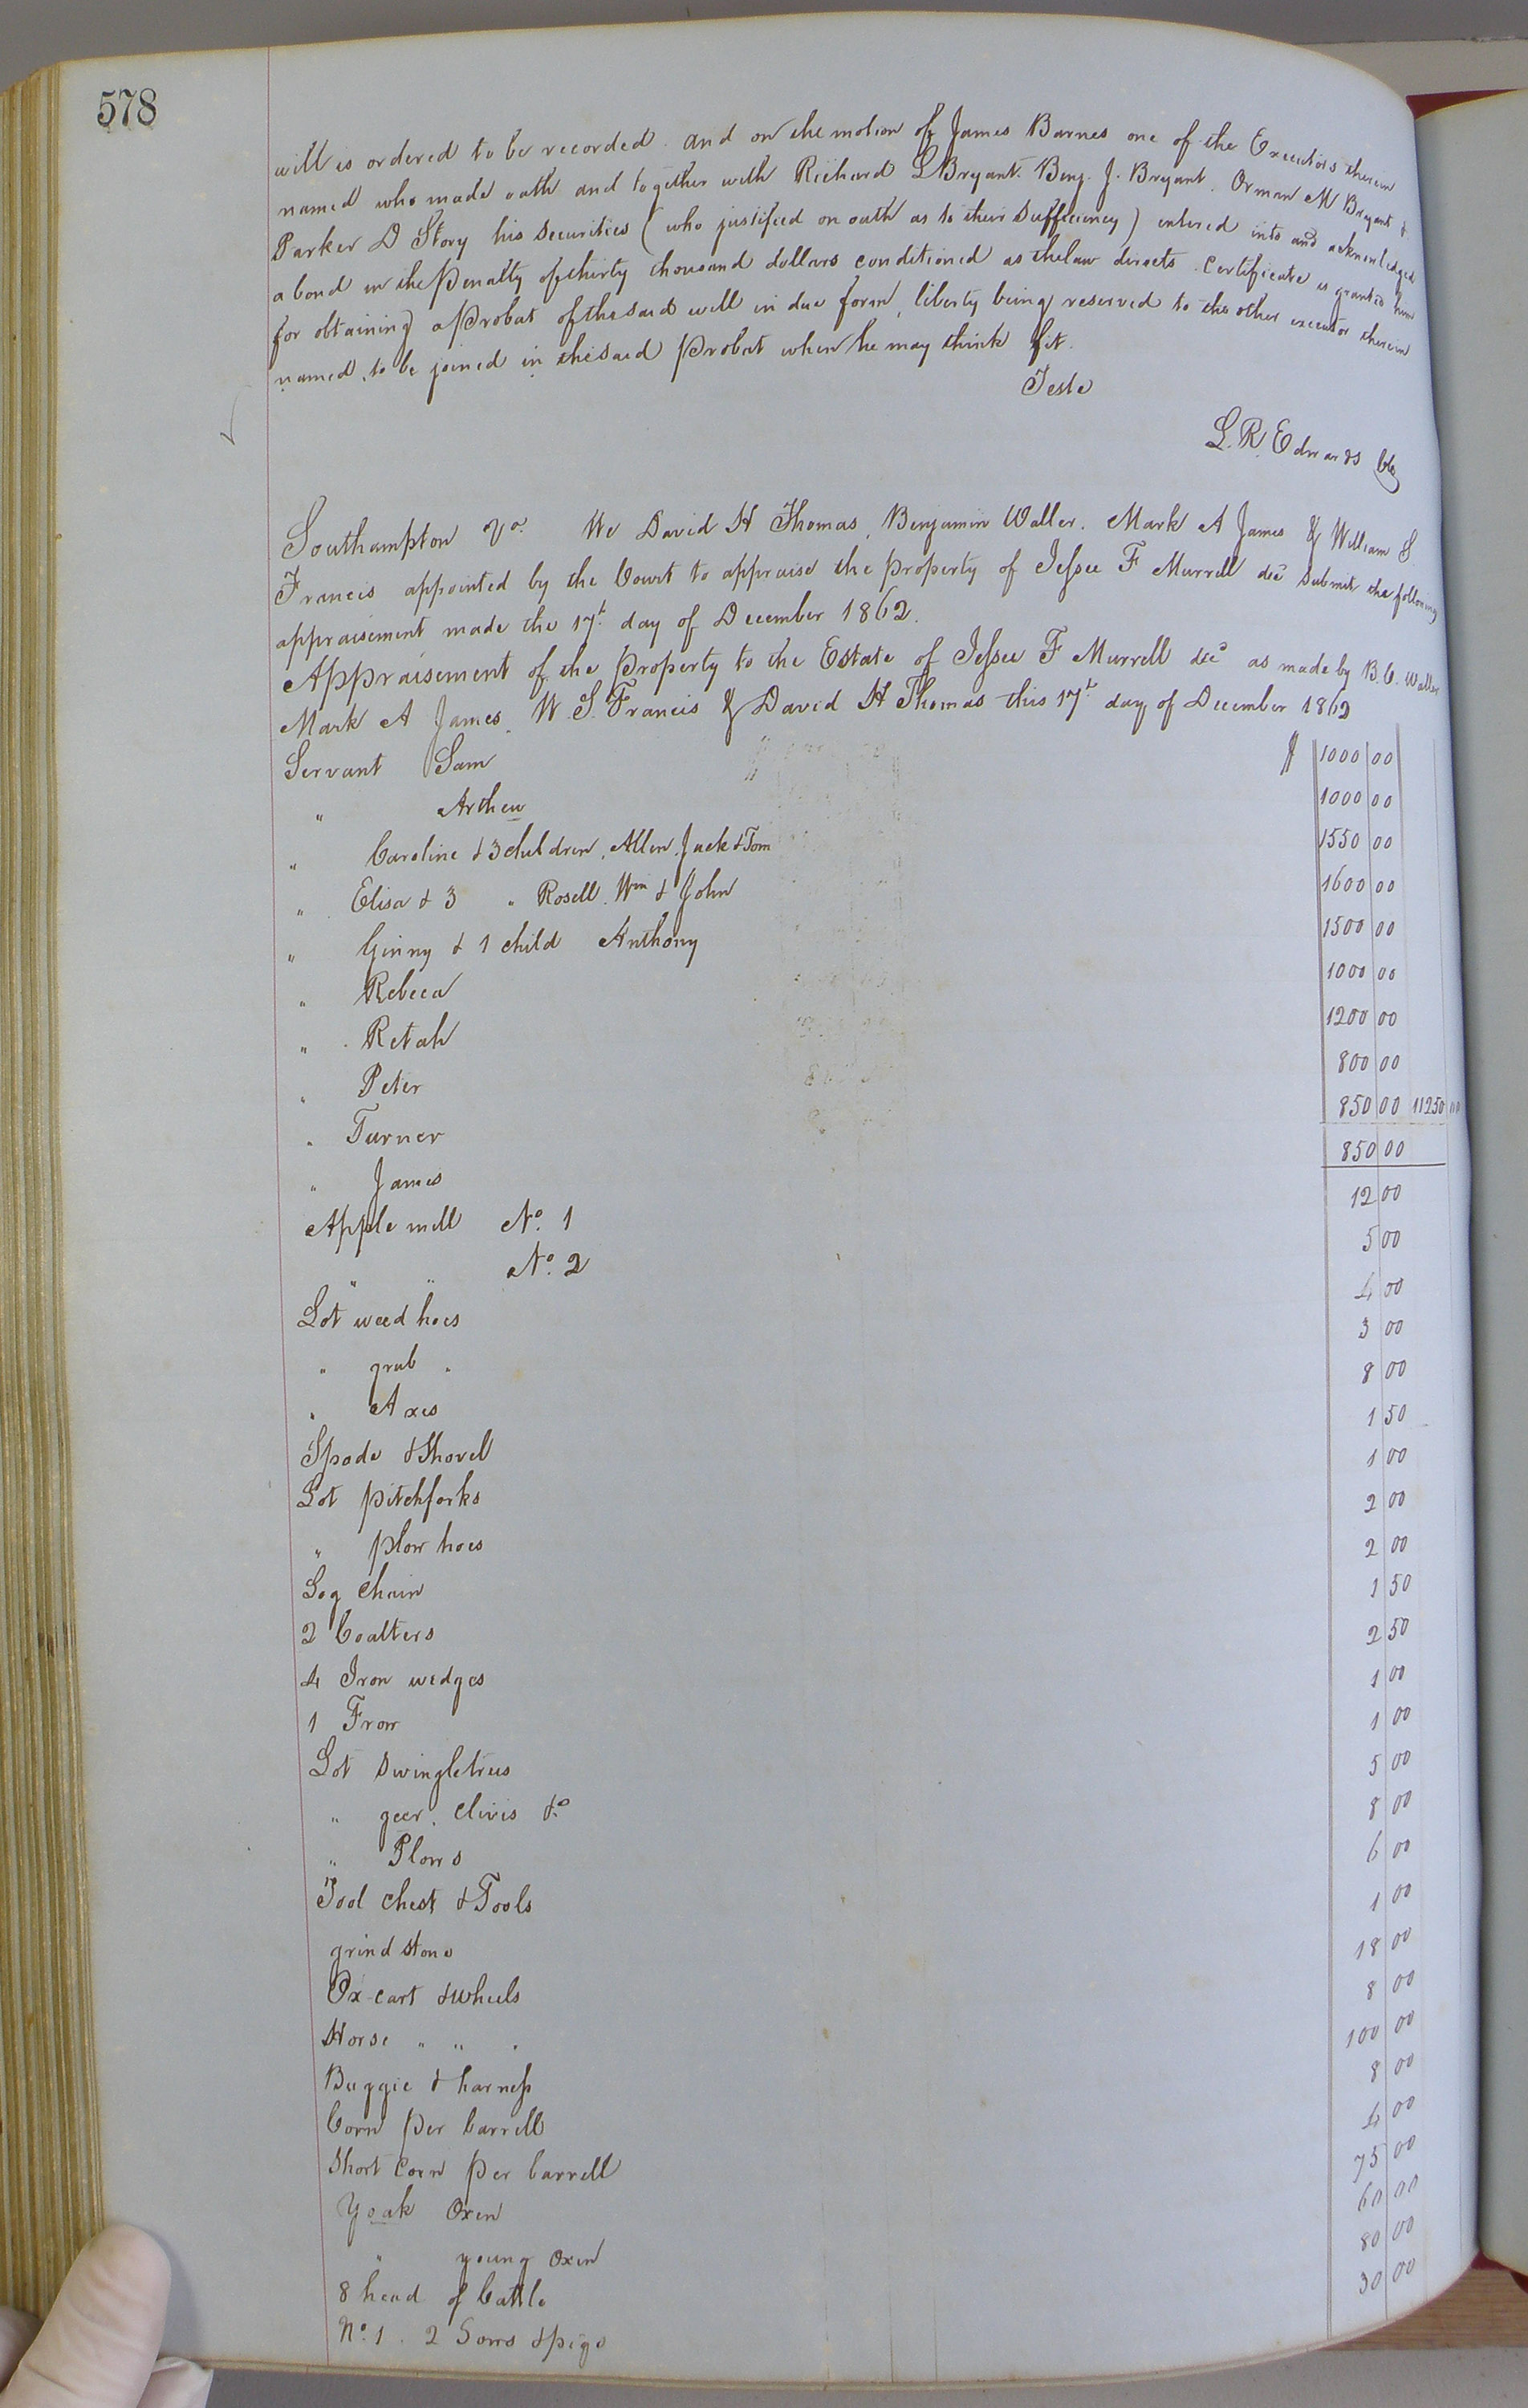 578
will is ordered to be recorded. And on the motion of James Barnes one of the Executors therein
named who made oath and together with Richard L Bryant. Benj. J. Bryant. Orman M Bryant &
Parker D Story his securities (who justified on oath as to their sufficiency) entered into and acknowledged
a bond in the Penalty of thirty thousand dollars conditioned as the law directs. Certificate is granted him
for obtaining a Probat of the said will in due form, liberty being reserved to the other executor therein
named, to be joined in the said Probat when he may think fit.
Teste
L. R. Edwards Clk
Southampton Va. We David H Thomas, Benjamin Waller. Mark A James & William S.
Francis appointed by the Court to appraise the property of Jessee F Murrell decd submit the following
appraisement made the 17t day of December 1862.
Appraisement of the property to the Estate of Jessee F Murrell decd as made by B. C. Waller
Mark A James, W. S. Francis & David H Thomas this 17t day of December 1862
Servant Sam $ 1000 00
" Arthew 1000 00
" Caroline & 3 children, Allen, Jack & Tom 1550 00
" Elisa & 3 " Rosell, Wm & John 1600 00
" Ginny & 1 child Anthony 1500 00
" Rebeca 1000 00
" Retah 1200 00
" Peter 800 00
" Turner 850 00 11250 00
" James 850 00
Apple mill No. 1 12 00
" " No. 2 5 00
Lot weed hoes 4 00
" grub " 3 00
" Axes 8 00
Spade & Shovel 1 50
Lot pitchforks 1 00
" plow hoes 2 00
Log Chain 2 00
2 Coalters 1 50
4 Iron wedges 2 50
1 Frow 1 00
Lot swingletrees 1 00
" geer, Clivis &c 5 00
" Plows 8 00
Tool Chest & Tools 6 00
grind stone 1 00
Ox-cart & wheels 18 00
Horse " " " 8 00
Buggie & harness 100 00
Corn per barrell 8 00
Short Corn per barrell 4 00
Yoak Oxen 75 00
" young Oxen 60 00
8 head of Cattle 80 00
No. 1. 2 Sows & pigs 30 00